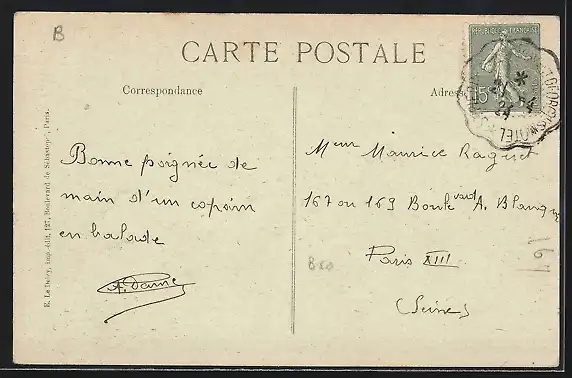 B
CARTE POSTALE
Correspondance
Adresse
RÉPUBLIQUE FRANÇAISE
15
Bonne poignée de
main d'un copain
en balade
A. Dame
Mr Maurice Raguet
167 ou 169 Boulevard A. Blanqui
Paris XIII
(Seine)
169
E. Le Deley, imp.-édit, 127, Boulevard de Sébastopol, Paris.